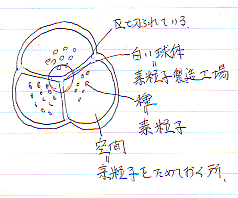 区切られている。
白い球体
||
素粒子製造工場
種
||
素粒子
空間
||
素粒子をためておく所。